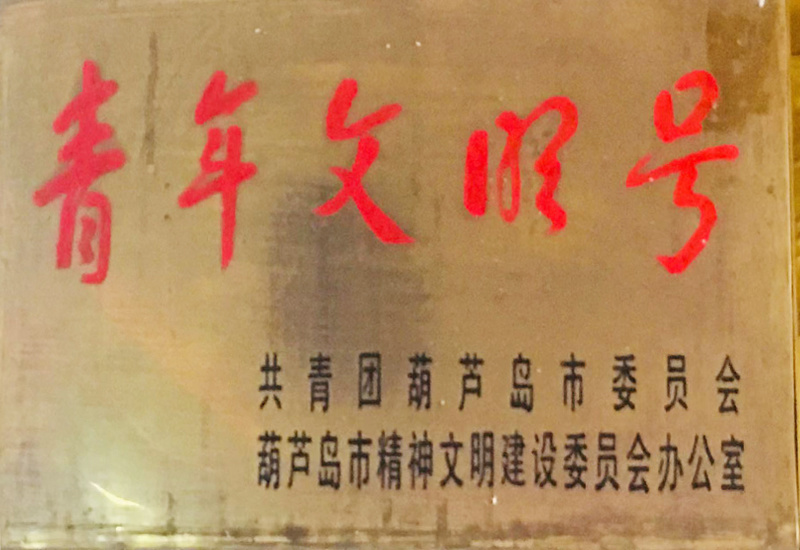 青年文明号
共青团葫芦岛市委员会
葫芦岛市精神文明建设委员会办公室